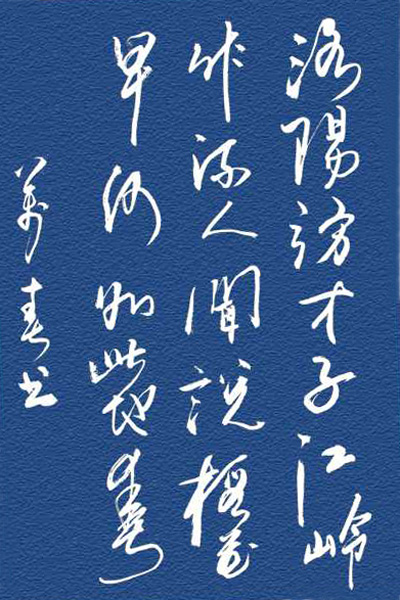 洛陽訪才子江岭
作流人聞説梅花
早何如此地春
萬春书